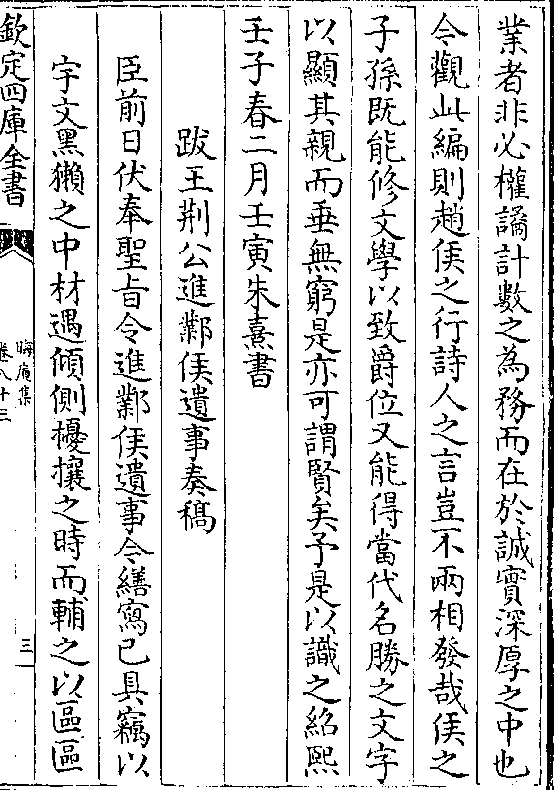 業者非必權譎計數之為務而在於誠實深厚之中也
今觀此編則趙侯之行詩人之言豈不兩相發哉侯之
子孫既能修文學以致爵位又能得當代名勝之文字
以顯其親而垂無窮是亦可謂賢矣予是以識之紹熙
壬子春二月壬寅朱熹書
跋王荆公進鄴侯遺事奏稿
臣前日伏奉聖旨令進鄴侯遺事令繕寫已具竊以
宇文黑獺之中材遇傾側擾攘之時而輔之以區區
欽定四庫全書
晦庵集
卷八十三
三